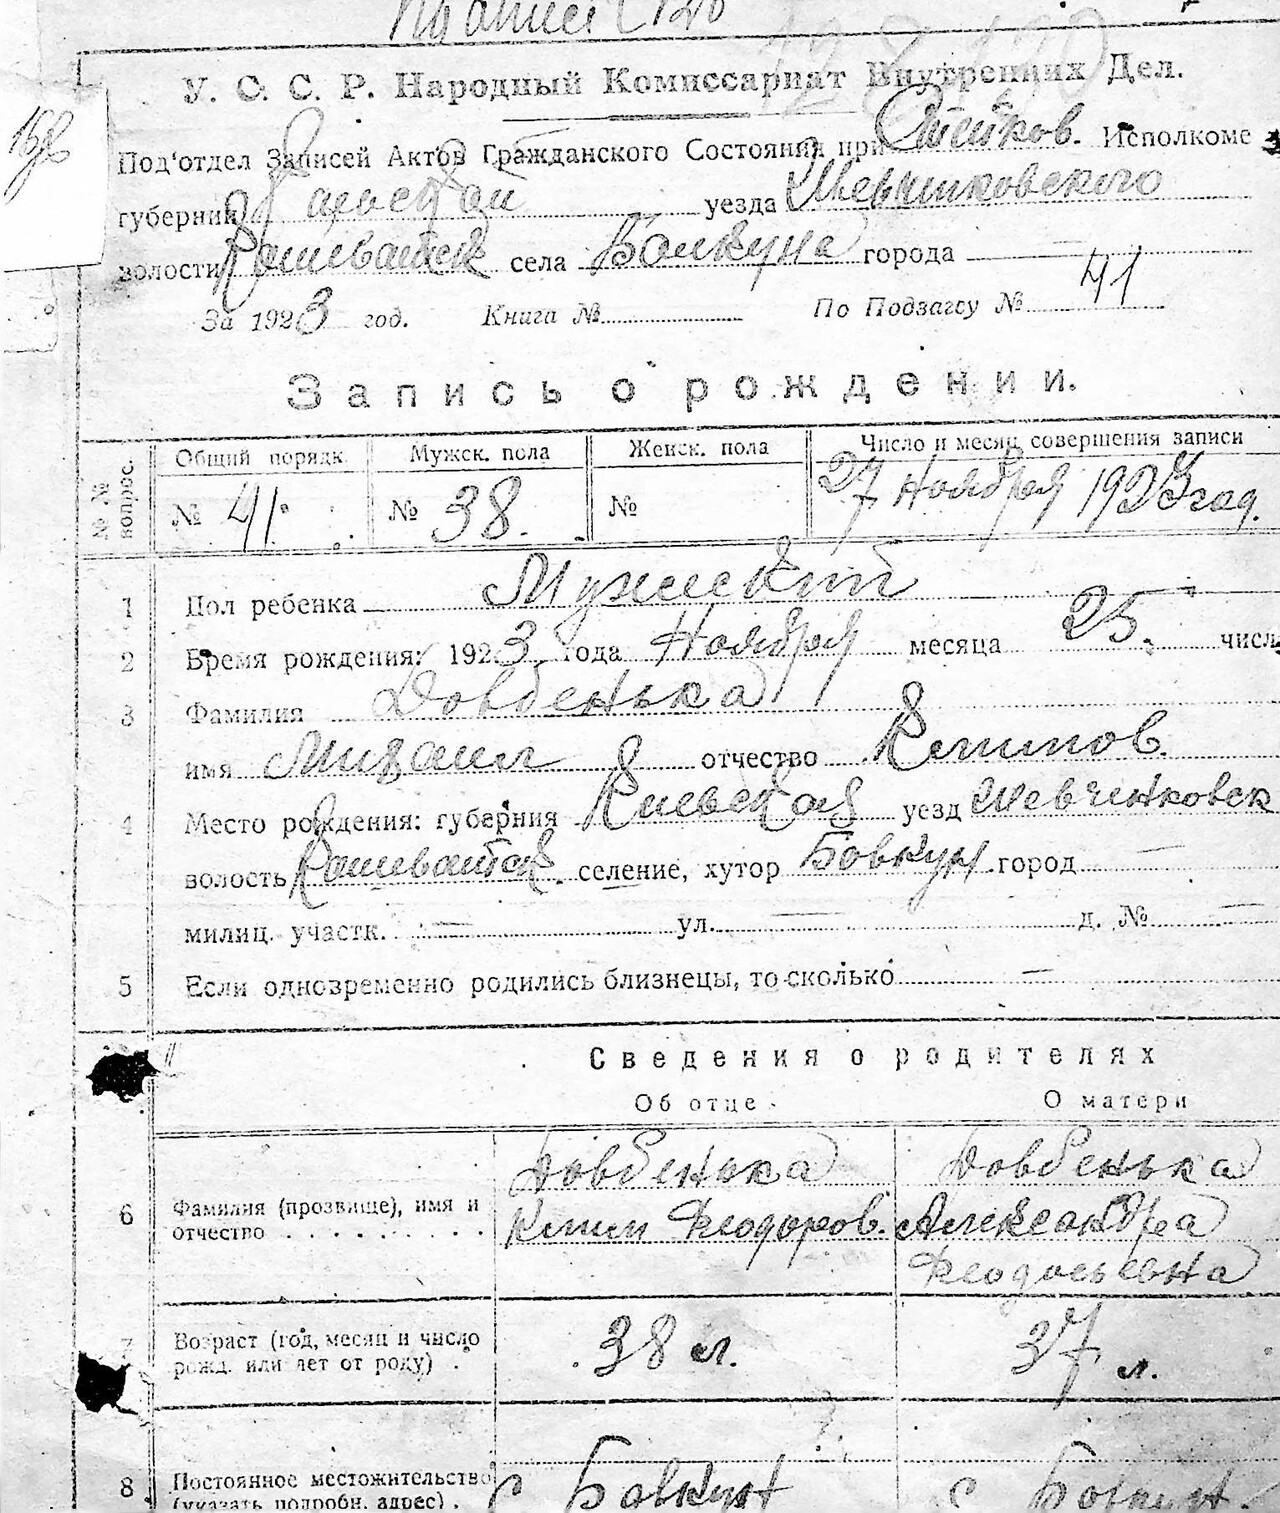 У. С. С. Р. Народный Комиссариат Внутренних Дел.
Под'отдел Записей Актов Гражданского Состояния при Исполкоме
губернии Киевской уезда Шевченковского
волости села Бовкуна города —
За 1923 год. Книга № По Подзагсу № 41
Запись о рождении.
№ № вопрос.
Общий порядк. Мужск. пола Женск. пола Число и месяц совершения записи
№ 41. № 38. № 27 Ноября 1923 год.
1 Пол ребенка Мужеский
2 Время рождения: 1923 года Ноября месяца 25. числ
3 Фамилия Довбенька
имя Михаил отчество Климов.
4 Место рождения: губерния Киевская уезд Шевченковск
волость селение, хутор Бовкун. город —
милиц. участк. — ул. — д. № —
5 Если одновременно родились близнецы, то сколько —
Сведения о родителях
Об отце. О матери
6 Фамилия (прозвище), имя и отчество . . . . . . . . .
Довбенька
Клим Феодоров.
Довбенька
Александра
Феодосьевна
7 Возраст (год, месяц и число рожд. или лет от роду) .
38 л.
37 л.
8 Постоянное местожительство (указать подробн. адрес) .
с Бовкун
с Бовкун.